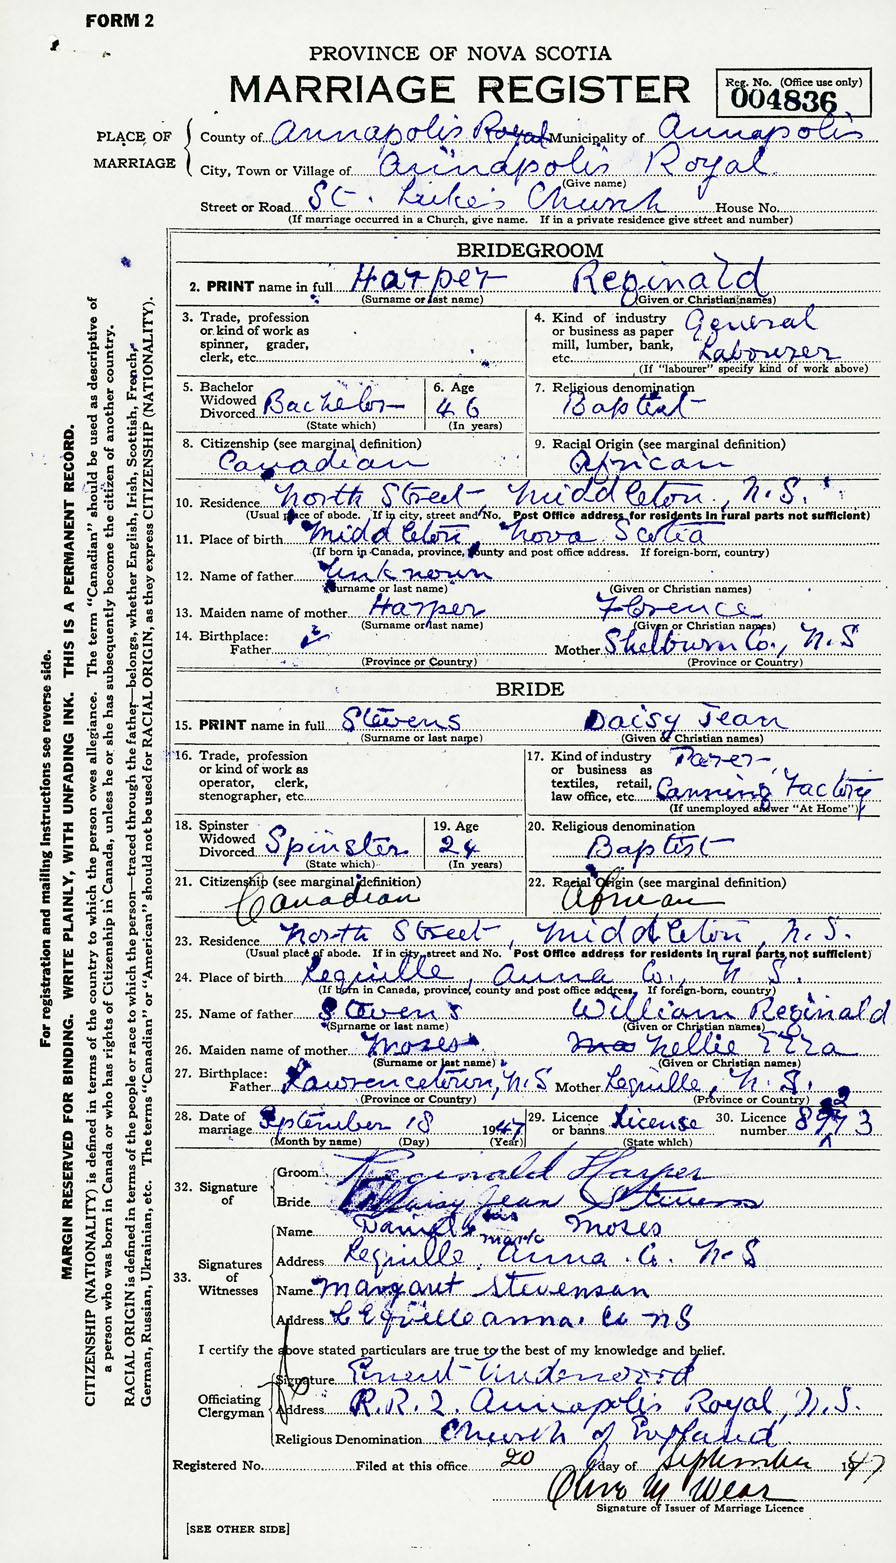 FORM 2
PROVINCE OF NOVA SCOTIA
MARRIAGE REGISTER
Reg. No. (Office use only)
004836
PLACE OF MARRIAGE
County of Annapolis Royal Municipality of Annapolis
City, Town or Village of Annapolis Royal
(Give name)
Street or Road St. Luke's Church House No.
(If marriage occurred in a Church, give name. If in a private residence give street and number)
BRIDEGROOM
2. PRINT name in full Harper Reginald
(Surname or last name) (Given or Christian names)
3. Trade, profession or kind of work as spinner, grader, clerk, etc.
4. Kind of industry or business as paper mill, lumber, bank, etc. General Labourer
(If "labourer" specify kind of work above)
5. Bachelor Widowed Divorced Bachelor
(State which)
6. Age 46
(In years)
7. Religious denomination
Baptist
8. Citizenship (see marginal definition)
Canadian
9. Racial Origin (see marginal definition)
African
10. Residence North Street, Middleton, N.S.
(Usual place of abode. If in city, street and No. Post Office address for residents in rural parts not sufficient)
11. Place of birth Middleton, Nova Scotia
(If born in Canada, province, county and post office address. If foreign-born, country)
12. Name of father Unknown
(Surname or last name) (Given or Christian names)
13. Maiden name of mother Harper Florence
(Surname or last name) (Given or Christian names)
14. Birthplace:
Father ? Mother Shelburn Co., N.S
(Province or Country) (Province or Country)
BRIDE
15. PRINT name in full Stevens Daisy Jean
(Surname or last name) (Given & Christian names)
16. Trade, profession or kind of work as operator, clerk, stenographer, etc.
17. Kind of industry or business as textiles, retail, law office, etc. Parer Canning Factory
(If unemployed answer "At Home")
18. Spinster Widowed Divorced Spinster
(State which)
19. Age 24
(In years)
20. Religious denomination
Baptist
21. Citizenship (see marginal definition)
Canadian
22. Racial Origin (see marginal definition)
African
23. Residence North Street, Middleton, N.S.
(Usual place of abode. If in city, street and No. Post Office address for residents in rural parts not sufficient)
24. Place of birth Lequille, Anna Co., N.S.
(If born in Canada, province, county and post office address. If foreign-born, country)
25. Name of father Stevens William Reginald
(Surname or last name) (Given or Christian names)
26. Maiden name of mother Moses Nellie Etta
(Surname or last name) (Given or Christian names)
27. Birthplace:
Father Lawrencetown, N.S Mother Lequille, N.S.
(Province or Country) (Province or Country)
28. Date of marriage September 18 1947
(Month by name) (Day) (Year)
29. Licence or banns License
(State which)
30. Licence number
32. Signature of
Groom Reginald Harper
Bride Daisy Jean Stevens
33. Signatures of Witnesses
Name Daniel his mark Moses
Address Lequille, Anna. Co. N.S
Name Margaret Stevenson
Address LEquille Anna. Co NS
I certify the above stated particulars are true to the best of my knowledge and belief.
Officiating Clergyman
Signature Ernest Underwood
Address R.R.2. Annapolis Royal, N.S.
Religious Denomination Church of England
Registered No. Filed at this office 20 day of September 1947
Olive M Wear
Signature of Issuer of Marriage Licence
[SEE OTHER SIDE]
For registration and mailing instructions see reverse side.
MARGIN RESERVED FOR BINDING. WRITE PLAINLY, WITH UNFADING INK. THIS IS A PERMANENT RECORD.
CITIZENSHIP (NATIONALITY) is defined in terms of the country to which the person owes allegiance. The term "Canadian" should be used as descriptive of
a person who was born in Canada or who has rights of Citizenship in Canada, unless he or she has subsequently become the citizen of another country.
RACIAL ORIGIN is defined in terms of the people or race to which the person—traced through the father—belongs, whether English, Irish, Scottish, French,
German, Russian, Ukrainian, etc. The terms "Canadian" or "American" should not be used for RACIAL ORIGIN, as they express CITIZENSHIP (NATIONALITY).